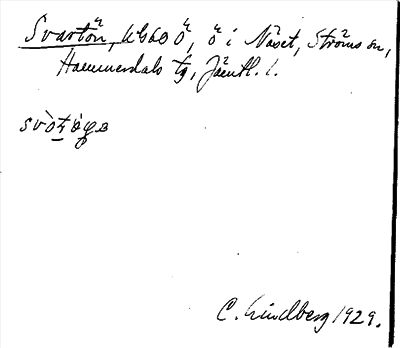 Svartön, ö i Näset, Ströms sn,
Hammerdals tg, Jämtl. l.
C. Lindberg 1929.